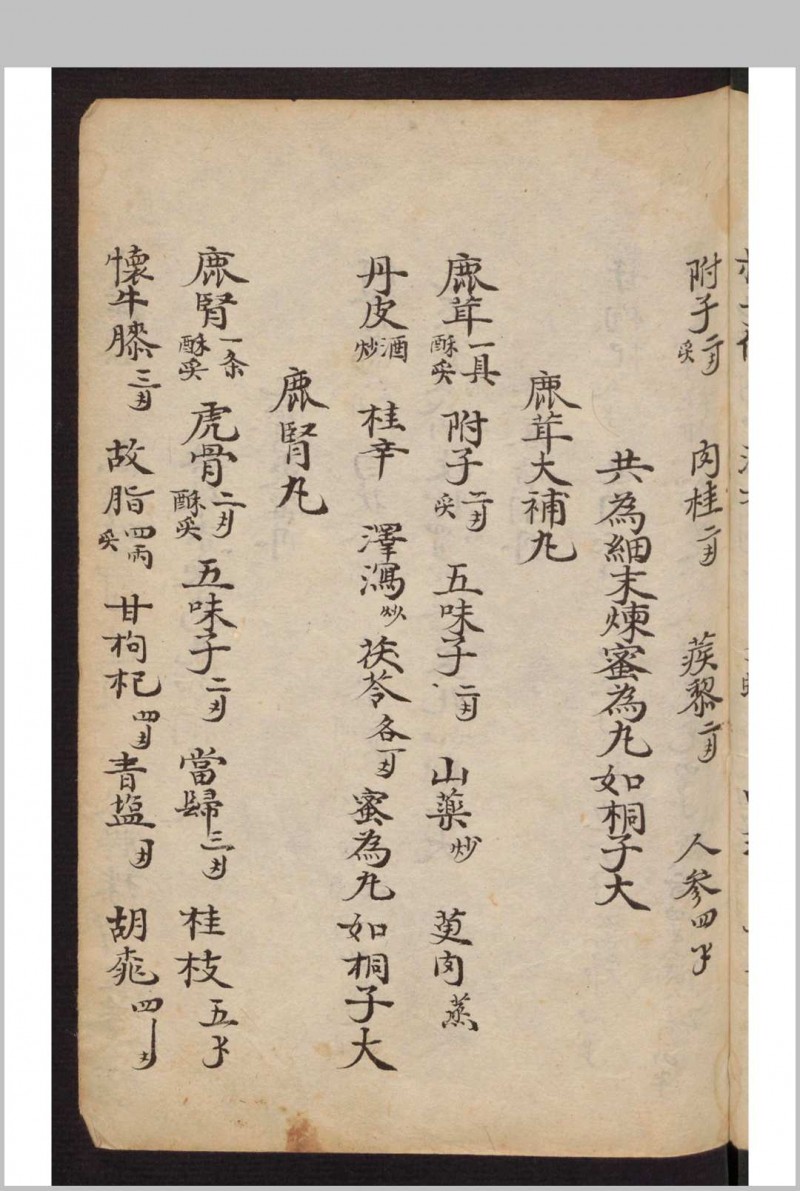 附子二刄炙 肉桂二刄 蒺藜二刄 人参四
共為細末煉蜜為丸如桐子大
鹿茸大補丸
鹿茸一具酥炙 附子二刄炙 五味子二刄 山藥炒 萸肉蒸
丹皮酒炒 桂辛 澤瀉炒 茯苓各一刄 蜜為丸如桐子大
鹿腎丸
鹿腎一条酥炙 虎骨二刄酥炙 五味子二刄 當歸三刄 桂枝五
懷牛膝三刄 故脂四兩炙 甘枸杞四刄 青盐一刄 胡桃四